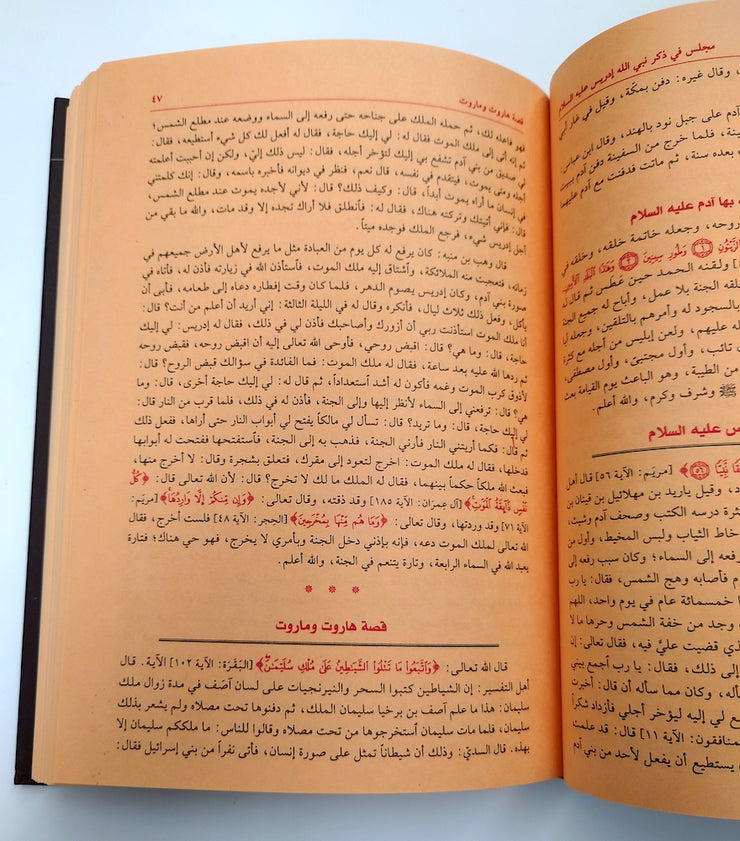 مجلس في ذكر نبي الله إدريس عليه السلام
، وقال غيره: دفن بمكة، وقيل في غار أبي
آدم على جبل نود بالهند، وقال ابن عباس:
سفينة، فلما خرج من السفينة دفن آدم ببيت
بعده سنة، ثم ماتت فدفنت مع آدم عليهما
بها آدم عليه السلام
روحه، وجعله خاتمة خلقه، وخلقه في
الزَّيْتُونِ ۝١ وَطُورِ سِينِينَ ۝٢ وَهَذَا الْبَلَدِ الْأَمِينِ
ولقنه الحمد حين عطس ثم قال
لقه الجنة بلا عمل، وأباح له جميع الجنة
بالسجود له وأمرهم بالتلقين، وجعله
له عليهم، ولعن إبليس من أجله مع كثرة
تائب، وأول مجتبىً، وأول مصطفى،
من الطيبة، وهو الباعث يوم القيامة بعث
ﷺ وشرف وكرم، والله أعلم.
س عليه السلام
قًا نَّبِيًّا ۝٥٦﴾ [مريم: الآية ٥٦] قال أهل
د، وقيل يارد بن مهلائيل بن قينان بن
ثرة درسه الكتب وصحف آدم وشيث،
خاط الثياب ولبس المخيط، وأول من
فعه إلى السماء؛ وكان سبب رفعه إلى
وم فأصابه وهج الشمس، فقال: يا رب
ا خمسمائة عام في يوم واحد، اللهم
وجد من خفة الشمس وحرها ما لا
ذي قضيت عليّ فيه، فقال تعالى: إن
إلى ذلك، فقال: يا رب أجمع بيني
أله، وكان مما سأله أن قال: أخبرت
ع لي إليه ليؤخر أجلي فأزداد شكراً
لمنافقون: الآية ١١] قال: قد علمت
يستطيع أن يفعل لأحد من بني آدم
قصة هاروت وماروت ٤٧
فهو فاعله لك، ثم حمله الملك على جناحه حتى رفعه إلى السماء ووضعه عند مطلع الشمس؛
ثم إنه أتى إلى ملك الموت فقال له: لي إليك حاجة، فقال له أفعل لك كل شيء أستطيعه، فقال:
لي صديق من بني آدم تشفع بي إليك لتؤخر أجله، فقال: ليس ذلك إليّ، ولكن إن أحببت أعلمته
أجله ومتى يموت، فيتقدم في نفسه، قال نعم، فنظر في ديوانه فأخبره باسمه، وقال: إنك كلمتني
في إنسان ما أراه يموت أبداً، قال: وكيف ذلك؟ قال: لأني لأجده يموت عند مطلع الشمس،
قال: فإني أتيتك وتركته هناك، فقال له: فأنطلق فلا أراك تجده إلا وقد مات، والله ما بقي من
أجل إدريس شيء، فرجع الملك فوجده ميتاً.
قال وهب بن منبه: كان يرفع له كل يوم من العبادة مثل ما يرفع لأهل الأرض جميعهم في
زمانه، فتعجبت منه الملائكة، وأشتاق إليه ملك الموت، فأستأذن الله في زيارته فأذن له، فأتاه في
صورة بني آدم، وكان إدريس يصوم الدهر، فلما كان وقت إفطاره دعاه إلى طعامه، فأبى أن
يأكل، وفعل ذلك ثلاث ليال، فأنكره وقال له في الليلة الثالثة: إني أريد أن أعلم من أنت؟ قال:
أنا ملك الموت استأذنت ربي أن أزورك وأصاحبك فأذن لي في ذلك، فقال له إدريس: لي إليك
حاجة، قال: وما هي؟ قال: اقبض روحي، فأوحى الله تعالى إليه أن اقبض روحه، فقبض روحه
ثم ردها الله عليه بعد ساعة، فقال له ملك الموت: فما الفائدة في سؤالك قبض الروح؟ قال:
لأذوق كرب الموت وغمه فأكون له أشد استعداداً، ثم قال له: لي إليك حاجة أخرى، قال: وما
هي؟ قال: ترفعني إلى السماء لأنظر إليها وإلى الجنة، فأذن له في ذلك، فلما قرب من النار قال:
لي إليك حاجة، قال: وما تريد؟ قال: تسأل لي مالكاً يفتح لي أبواب النار حتى أراها، ففعل ذلك
ثم قال: فكما أريتني النار فأرني الجنة، فذهب به إلى الجنة، فأستفتحها ففتحت له أبوابها
فدخلها، فقال له ملك الموت: اخرج لتعود إلى مقرك، فتعلق بشجرة وقال: لا أخرج منها،
فبعث الله ملكاً حكماً بينهما، فقال له الملك ما لك لا تخرج؟ قال: لأن الله تعالى قال: ﴿كُلُّ
نَفْسٍ ذَائِقَةُ الْمَوْتِ﴾ [آل عِمرَان: الآية ١٨٥] وقد ذقته، وقال تعالى: ﴿وَإِن مِّنكُمْ إِلَّا وَارِدُهَا﴾ [مريَم:
الآية ٧١] وقد وردتها، وقال تعالى: ﴿وَمَا هُم مِّنْهَا بِمُخْرَجِينَ﴾ [الحِجر: الآية ٤٨] فلست أخرج، فقال
الله تعالى لملك الموت دعه، فإنه بإذني دخل الجنة وبأمري لا يخرج، فهو حي هناك؛ فتارة
يعبد الله في السماء الرابعة، وتارة يتنعم في الجنة، والله أعلم.
* * *
قصة هاروت وماروت
قال الله تعالى: ﴿وَاتَّبَعُوا مَا تَتْلُوا الشَّيَاطِينُ عَلَى مُلْكِ سُلَيْمَنَ﴾ [البَقَرَة: الآية ١٠٢] الآية. قال
أهل التفسير: إن الشياطين كتبوا السحر والنيرنجيات على لسان آصَف في مدة زوال ملك
سليمان: هذا ما علم آصف بن برخيا سليمان الملك، ثم دفنوها تحت مصلاه ولم يشعر بذلك
سليمان، فلما مات سليمان أستخرجوها من تحت مصلاه وقالوا للناس: ما ملككم سليمان إلا
بهذه. قال السديّ: وذلك أن شيطاناً تمثل على صورة إنسان، فأتى نفراً من بني إسرائيل فقال: